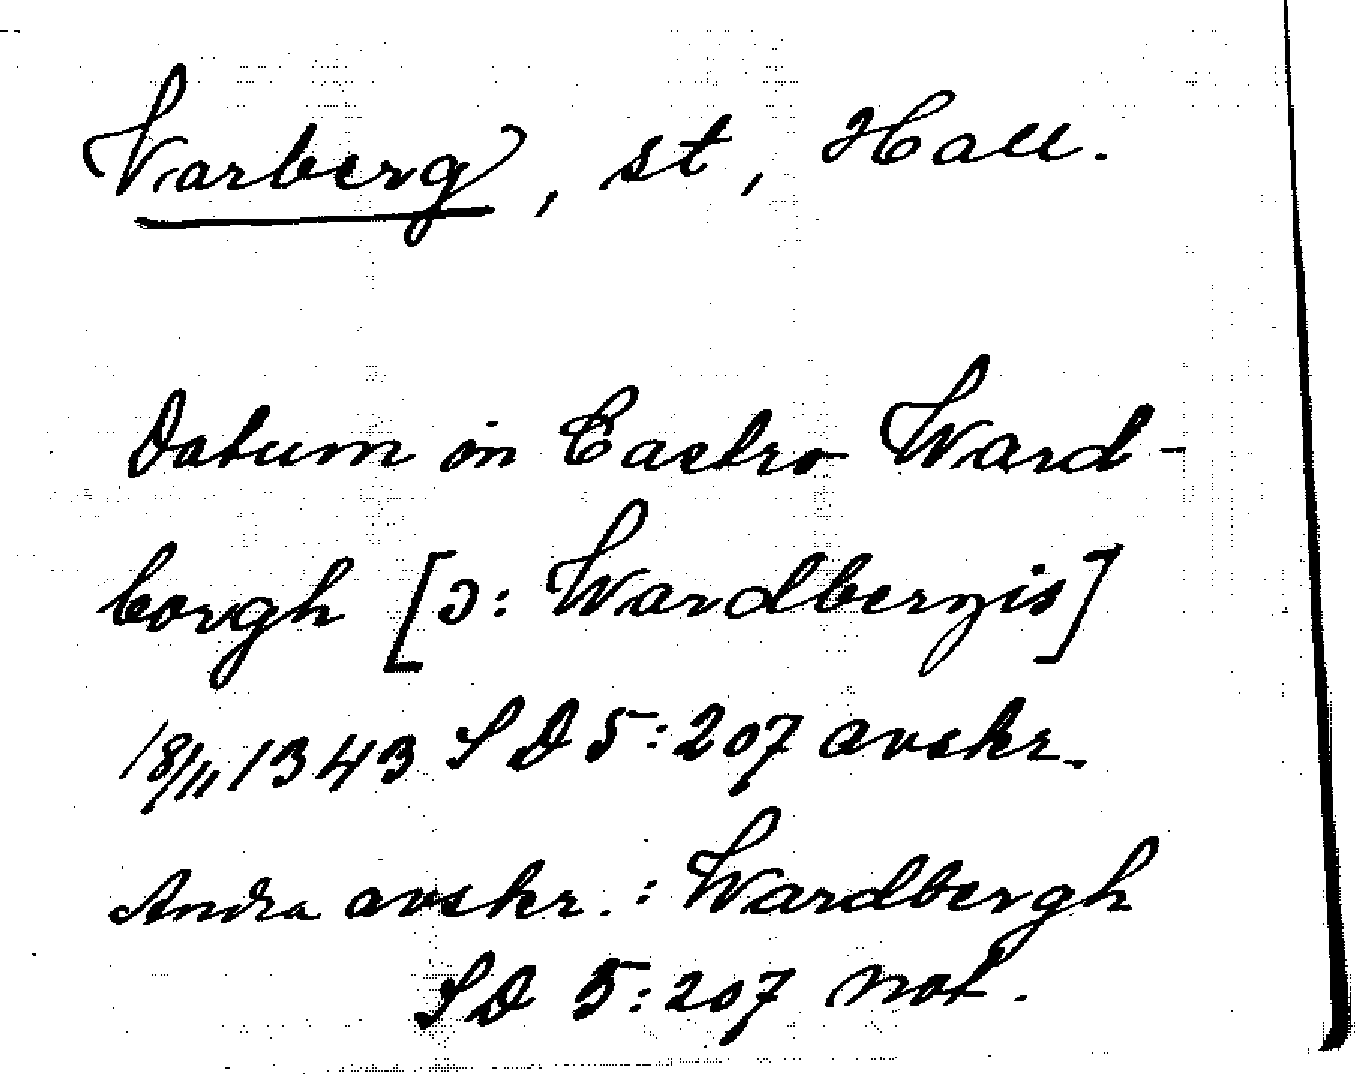 Varberg, st, Hall.
Datum in Castro Ward-
borgh [ɔ: Wardbergis]
18/11 1343 SD 5:207 avskr.
Andra avskr. : Wardbergh
SD 5:207 not.